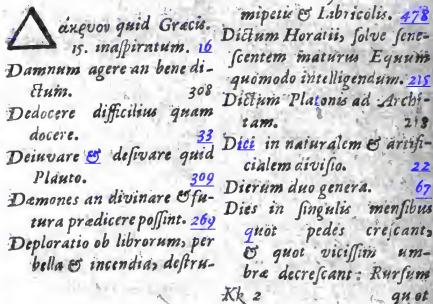 Δάκρυον quid Græcis.
15. inaſpiratum. 16
Damnum agere an bene di-
ctum. 308
Dedocere difficilius quam
docere. 33
Deiuvare & deſivare quid
Plauto. 309
Dæmones an divinare & fu-
tura prædicere poſſint. 269
Deploratio ob librorum, per
bella & incendia, deſtru-
mipetis & Libricolis. 478
Dictum Horatii, ſolve ſene-
ſcentem maturus Equum
quomodo intelligendum. 215
Dictum Platonis ad Archi-
tam. 218
Dici in naturalem & artifi-
cialem diviſio. 22
Dierum duo genera. 67
Dies in ſingulis menſibus
quot pedes creſcant,
& quot viciſſim um-
bræ decreſcant: Rurſum
Kk 2 quot